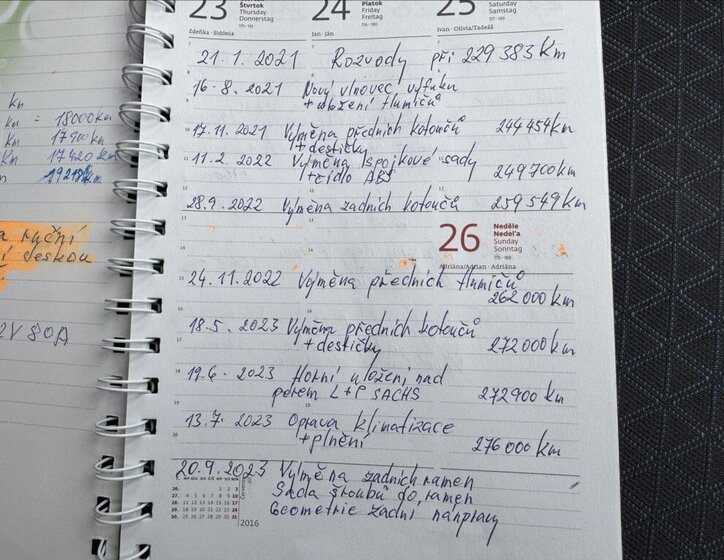 23 Štvrtok
Thursday
Donnerstag
24 Piatok
Friday
Freitag
25 Saturday
Samstag
Zdeňka · Sidónia
Jan · Ján
Ivan · Olívia/Tadeáš
21. 1. 2021 Rozvody při 229 383 Km
16. 8. 2021 Nový vlnovec výfuku
+ uložení tlumičů
17. 11. 2021 Výměna předních kotoučů 244 454 km
+ destičky
11. 2. 2022 Výměna spojkové sady
+ čidlo ABS 249 700 km
28. 9. 2022 Výměna zadních kotoučů 259 549 km
26 Neděle
Nedeľa
Sunday
Sonntag
Adriána/Adrian · Adriána
24. 11. 2022 Výměna předních tlumičů
262 000 km
18. 5. 2023 Výměna předních kotoučů
+ destičky 272 000 km
19. 6. 2023 Horní uložení nad
perem L+P SACHS 272 900 km
13. 7. 2023 Oprava klimatizace
+ plnění 276 000 km
20. 9. 2023 Výměna zadních ramen
Sada šroubů do ramen
Geometrie zadní nápravy
2016
km
km = 18000 km
km 17900 km
km 17420 km
ruční
deskou
2V 80A